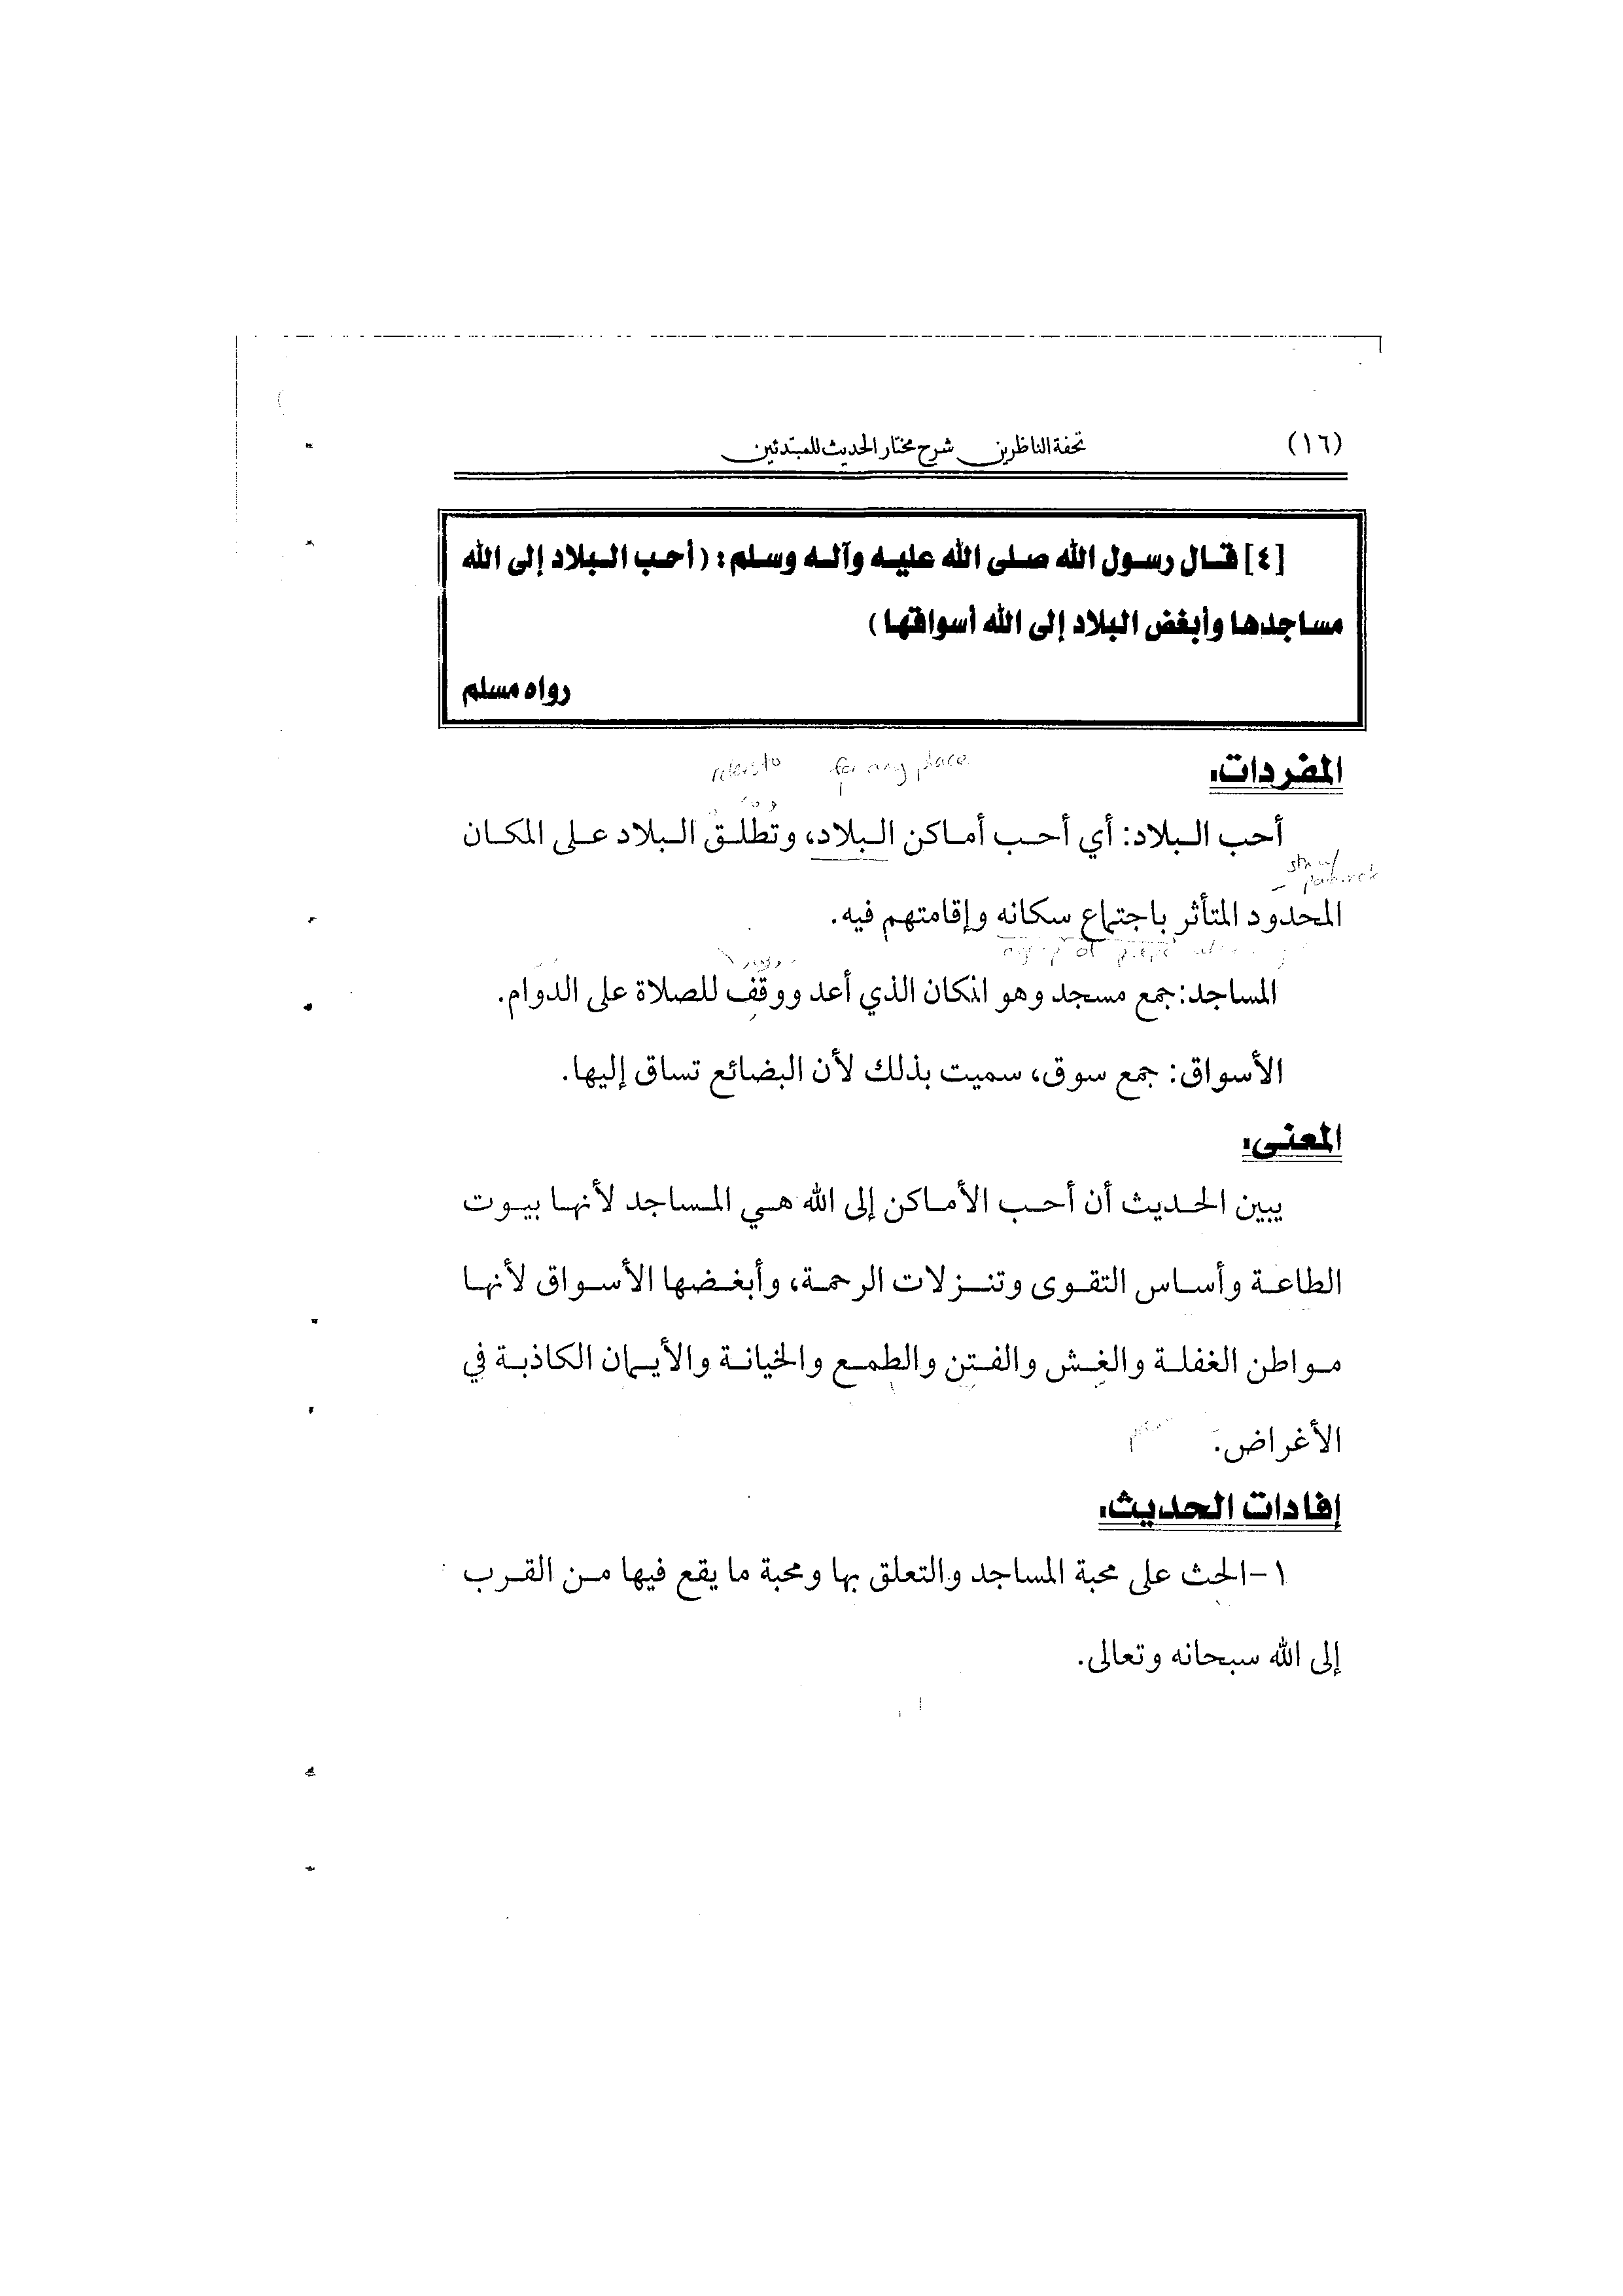 (١٦) تحفة الناظرين شرح مختار الحديث للمبتدئين
[٤] قال رسول الله صلى الله عليه وآله وسلم: (أحب البلاد إلى الله
مساجدها وأبغض البلاد إلى الله أسواقها)
رواه مسلم
المفردات:
refers to for any place
أحب البلاد: أي أحب أماكن البلاد، وتُطلق البلاد على المكان
المحدود المتأثر باجتماع سكانه وإقامتهم فيه.
المساجد: جمع مسجد وهو المكان الذي أعد ووقف للصلاة على الدوام.
الأسواق: جمع سوق، سميت بذلك لأن البضائع تساق إليها.
المعنى:
يبين الحديث أن أحب الأماكن إلى الله هي المساجد لأنها بيوت
الطاعة وأساس التقوى وتنزلات الرحمة، وأبغضها الأسواق لأنها
مواطن الغفلة والغش والفتن والطمع والخيانة والأيمان الكاذبة في
الأغراض.
إفادات الحديث:
١-الحث على محبة المساجد والتعلق بها ومحبة ما يقع فيها من القرب
إلى الله سبحانه وتعالى.